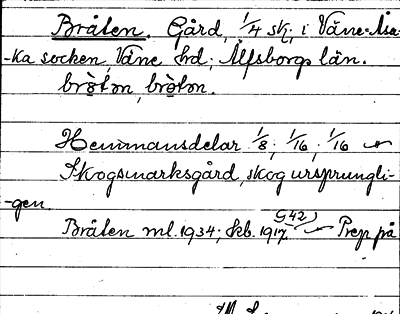 Bråten. Gård, 1/4 skj. i Väne-Åsa-
-ka socken, Väne hrd; Älfsborgs län.
bròton, bròton.
Hemmansdelar 1/8; 1/16; 1/16
Skogsmarksgård, skog ursprungli-
-gen.
G42)
Bråten ml. 1934; skb. 1917 Prep. på